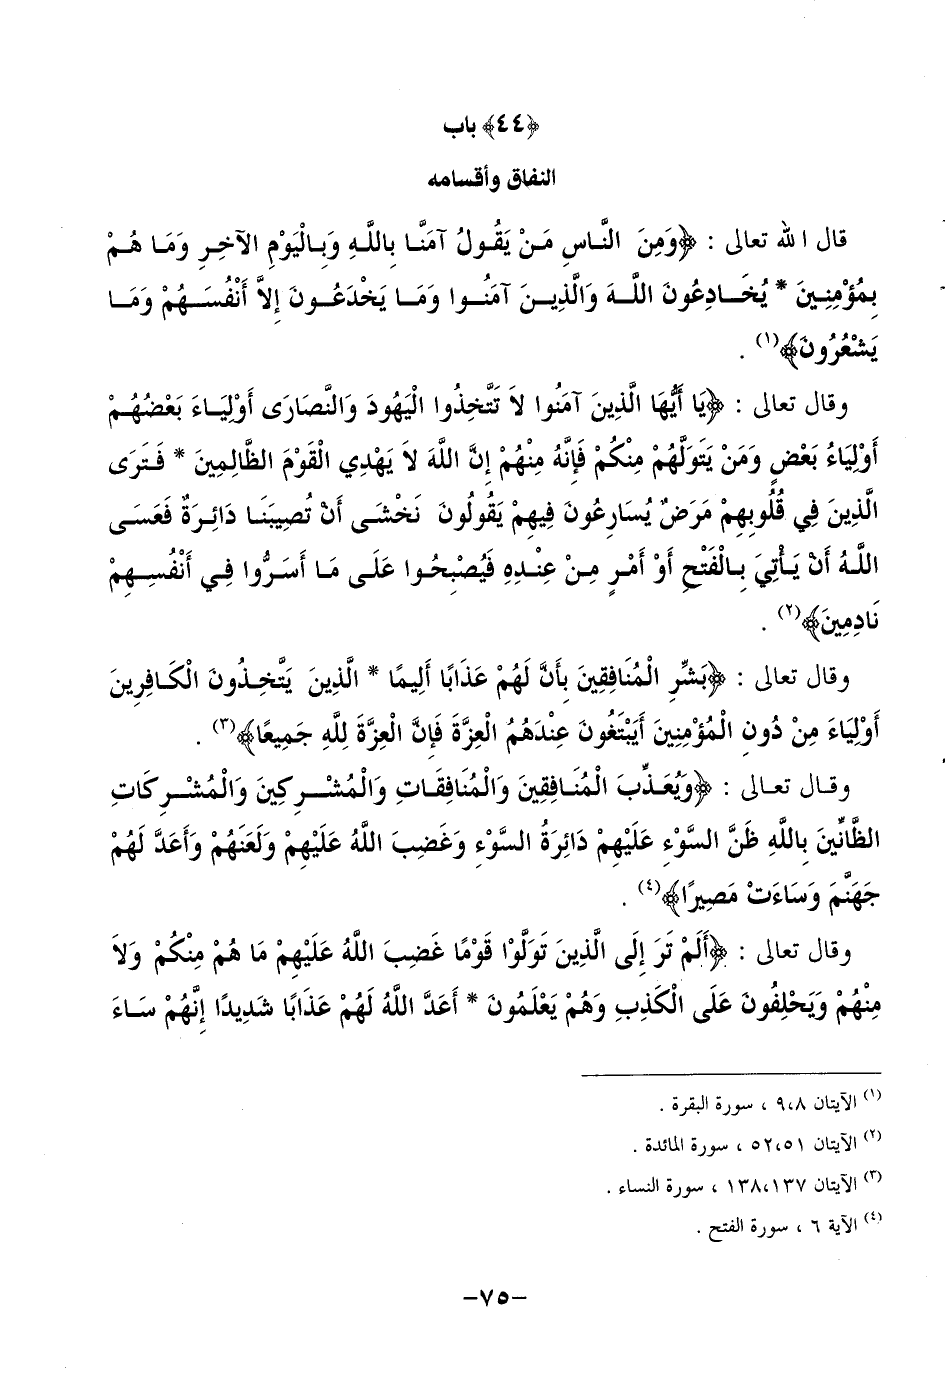 ﴿٤٤﴾ باب
النفاق وأقسامه
قال الله تعالى : ﴿وَمِنَ النَّاسِ مَنْ يَقُولُ آمَنَّا بِاللَّهِ وَبِالْيَوْمِ الآخِرِ وَمَا هُمْ
بِمُؤْمِنِينَ * يُخَادِعُونَ اللَّهَ وَالَّذِينَ آمَنُوا وَمَا يَخْدَعُونَ إِلاَّ أَنْفُسَهُمْ وَمَا
يَشْعُرُونَ﴾(١) .
وقال تعالى : ﴿يَا أَيُّهَا الَّذِينَ آمَنُوا لاَ تَتَّخِذُوا الْيَهُودَ وَالنَّصَارَى أَوْلِيَاءَ بَعْضُهُمْ
أَوْلِيَاءُ بَعْضٍ وَمَنْ يَتَوَلَّهُمْ مِنْكُمْ فَإِنَّهُ مِنْهُمْ إِنَّ اللَّهَ لاَ يَهْدِي الْقَوْمَ الظَّالِمِينَ * فَتَرَى
الَّذِينَ فِي قُلُوبِهِمْ مَرَضٌ يُسَارِعُونَ فِيهِمْ يَقُولُونَ نَخْشَى أَنْ تُصِيبَنَا دَائِرَةٌ فَعَسَى
اللَّهُ أَنْ يَأْتِيَ بِالْفَتْحِ أَوْ أَمْرٍ مِنْ عِنْدِهِ فَيُصْبِحُوا عَلَى مَا أَسَرُّوا فِي أَنْفُسِهِمْ
نَادِمِينَ﴾(٢) .
وقال تعالى : ﴿بَشِّرِ الْمُنَافِقِينَ بِأَنَّ لَهُمْ عَذَابًا أَلِيمًا * الَّذِينَ يَتَّخِذُونَ الْكَافِرِينَ
أَوْلِيَاءَ مِنْ دُونِ الْمُؤْمِنِينَ أَيَبْتَغُونَ عِنْدَهُمُ الْعِزَّةَ فَإِنَّ الْعِزَّةَ لِلَّهِ جَمِيعًا﴾(٣) .
وقال تعالى : ﴿وَيُعَذِّبَ الْمُنَافِقِينَ وَالْمُنَافِقَاتِ وَالْمُشْرِكِينَ وَالْمُشْرِكَاتِ
الظَّانِّينَ بِاللَّهِ ظَنَّ السَّوْءِ عَلَيْهِمْ دَائِرَةُ السَّوْءِ وَغَضِبَ اللَّهُ عَلَيْهِمْ وَلَعَنَهُمْ وَأَعَدَّ لَهُمْ
جَهَنَّمَ وَسَاءَتْ مَصِيرًا﴾(٤) .
وقال تعالى : ﴿أَلَمْ تَرَ إِلَى الَّذِينَ تَوَلَّوْا قَوْمًا غَضِبَ اللَّهُ عَلَيْهِمْ مَا هُمْ مِنْكُمْ وَلاَ
مِنْهُمْ وَيَحْلِفُونَ عَلَى الْكَذِبِ وَهُمْ يَعْلَمُونَ * أَعَدَّ اللَّهُ لَهُمْ عَذَابًا شَدِيدًا إِنَّهُمْ سَاءَ
(١) الآيتان ٩،٨ ، سورة البقرة .
(٢) الآيتان ٥٢،٥١ ، سورة المائدة .
(٣) الآيتان ١٣٨،١٣٧ ، سورة النساء .
(٤) الآية ٦ ، سورة الفتح .
-٧٥-